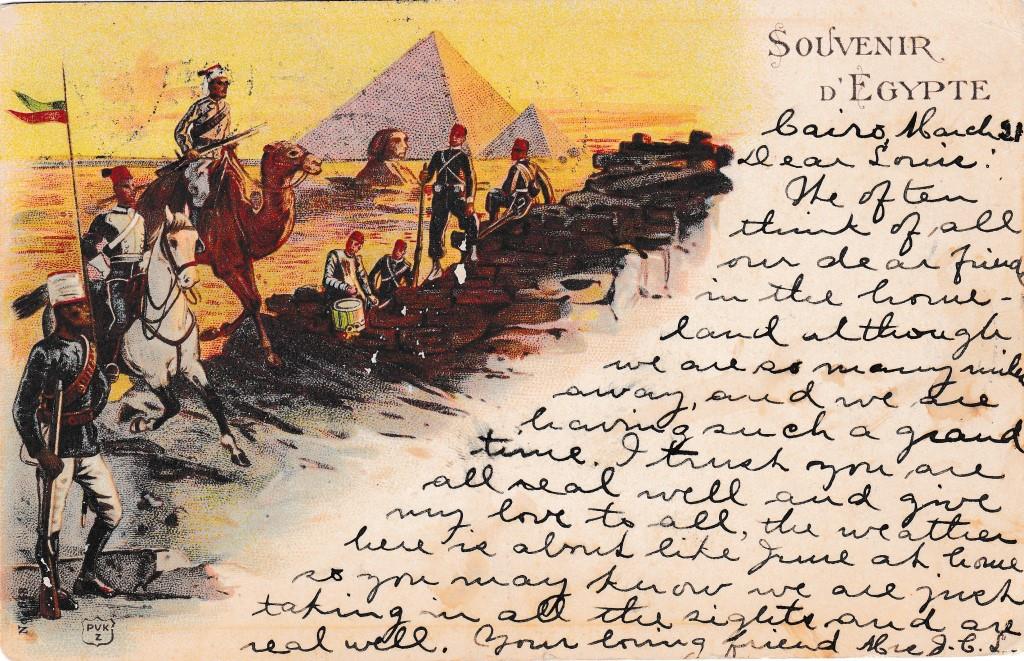 SOUVENIR
D'EGYPTE
Cairo, March 21
Dear Louie:
We often
think of all
our dear friend
in the home-
land although
we are so many miles
away, and we are
having such a grand
time. I trust you are
all real well and give
my love to all, the weather
here is about like June at home
so you may know we are just
taking in all the sights and are
real well. Your loving friend Mrs J. C. L.
PVK
Z